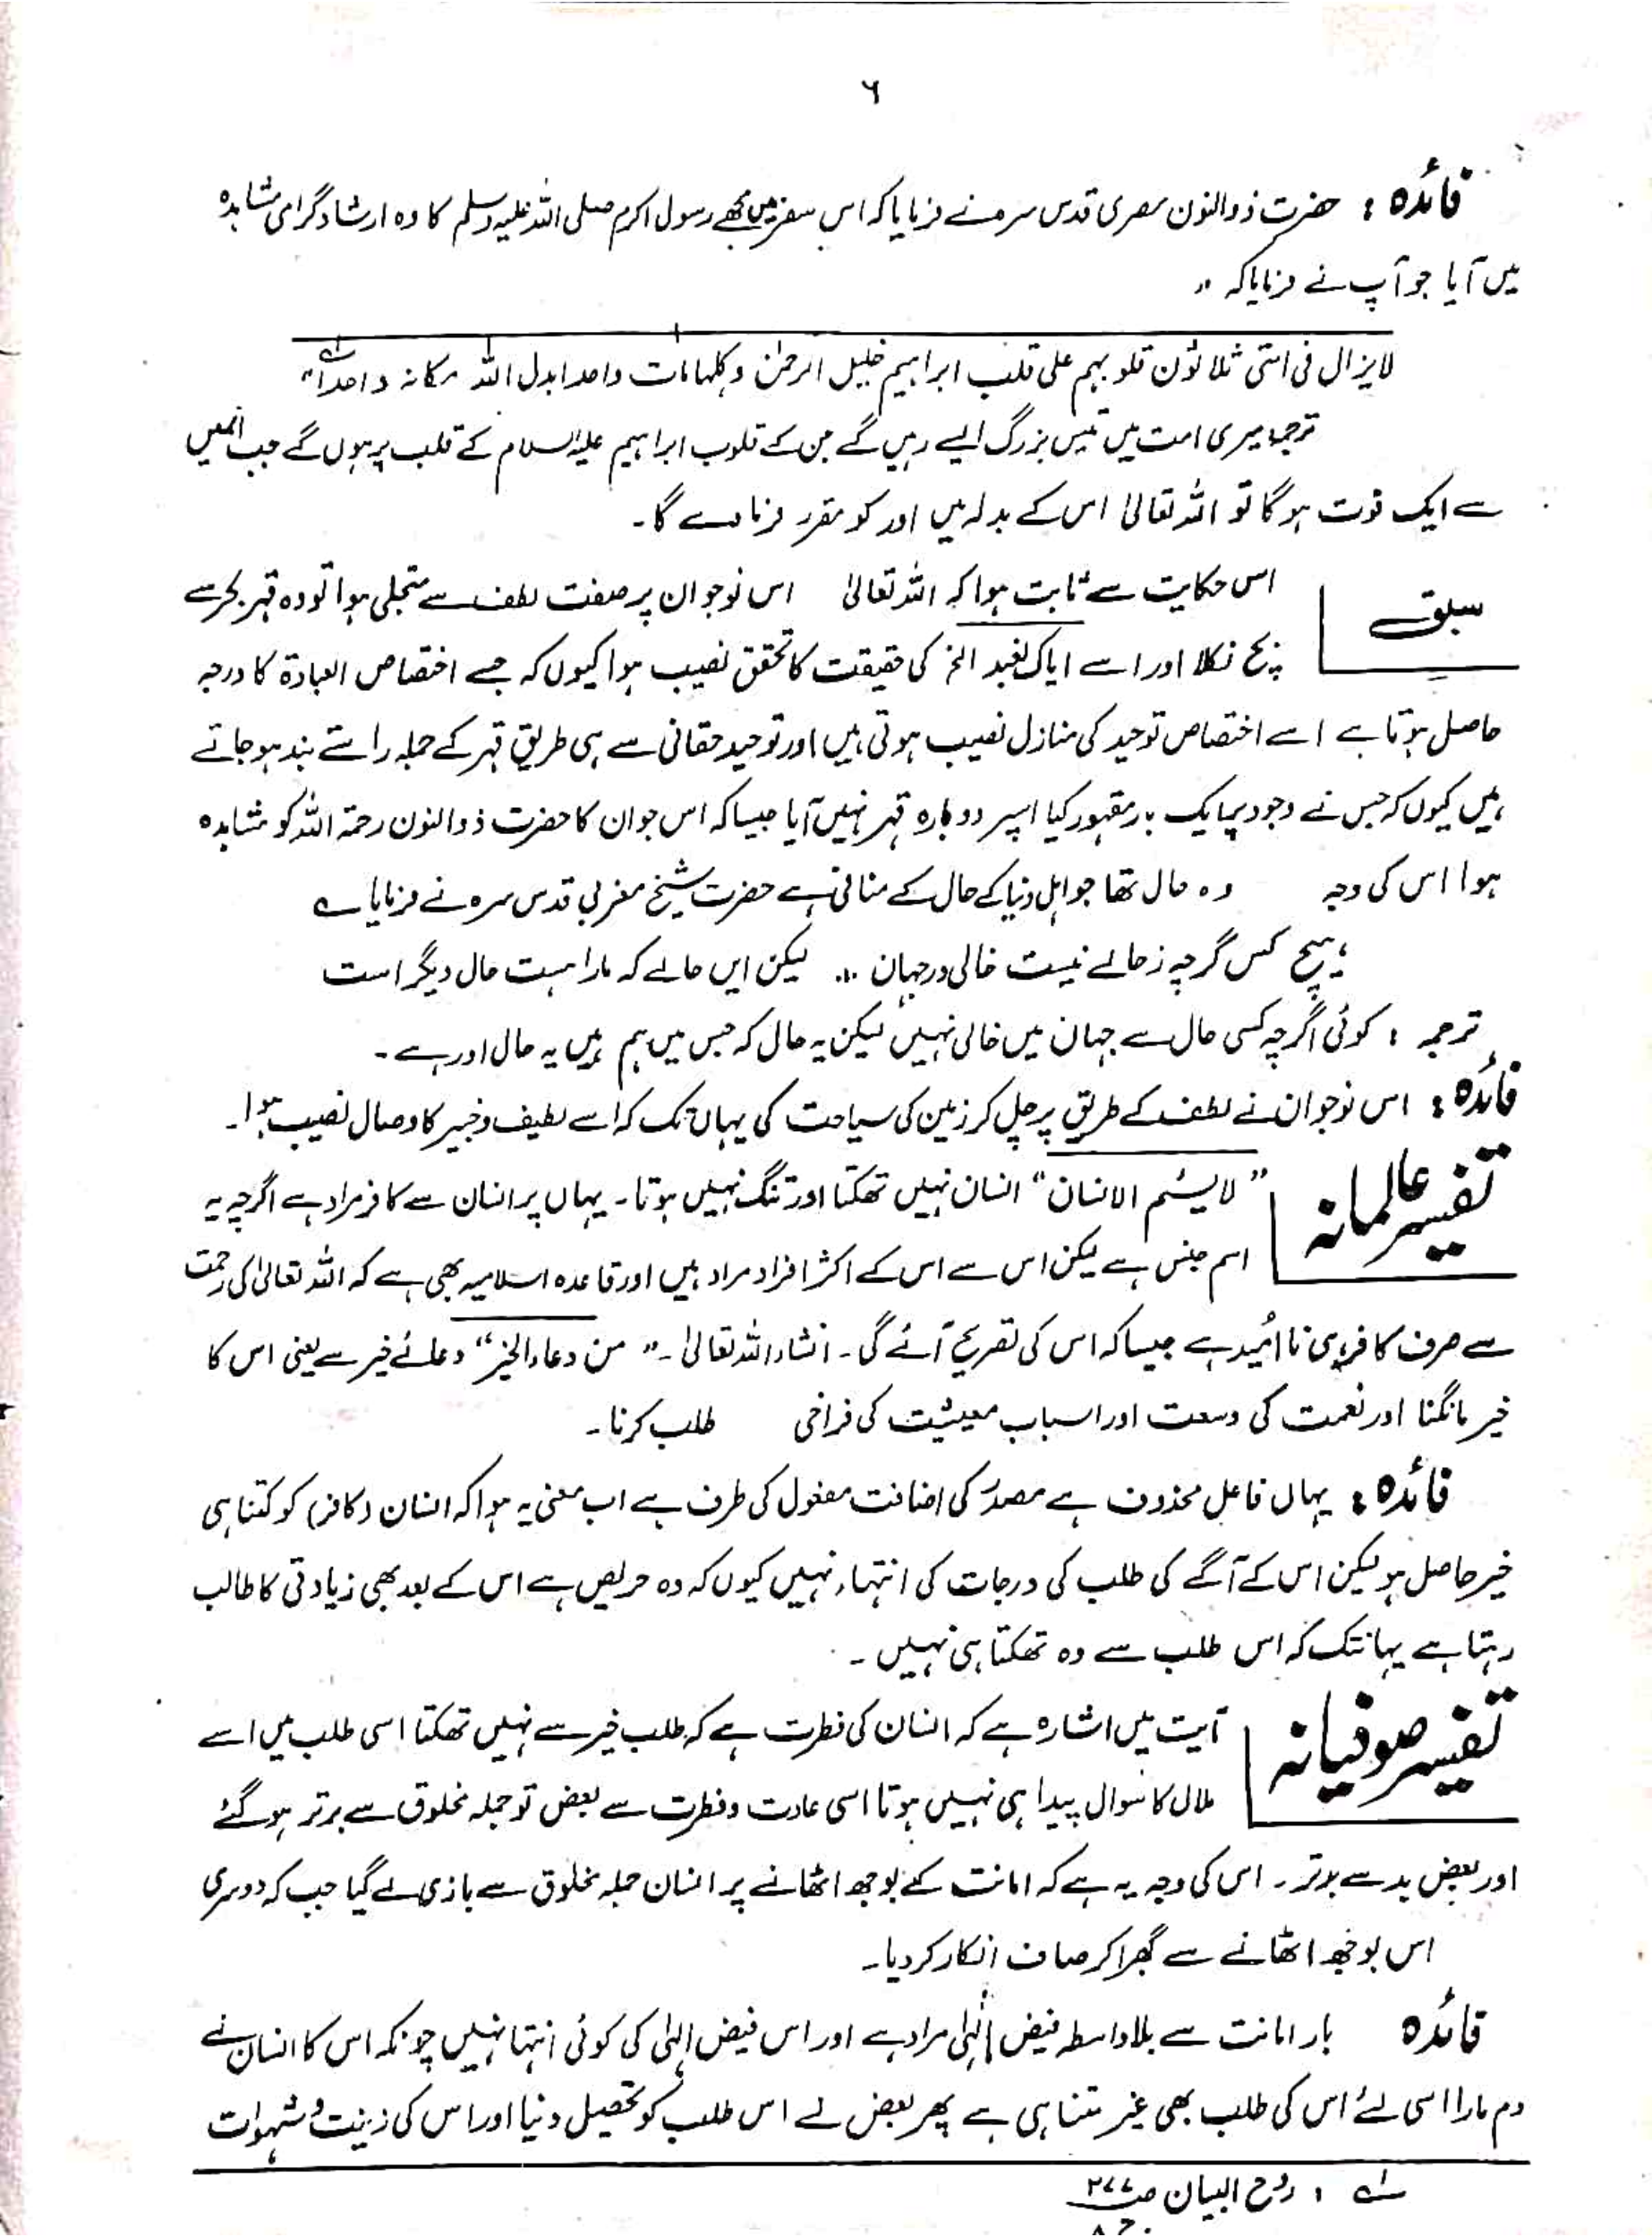 ۶
فائدہ : حضرت ذوالنون مصری قدس سرہ نے فرمایا کہ اس سفر میں مجھے رسول اکرم صلی اللہ علیہ وسلم کا وہ ارشاد گرامی مشاہدہ
میں آیا جو آپ نے فرمایا کہ "
لایزال فی امتی ثلاثون قلوبہم علی قلب ابراہیم خلیل الرحمٰن وکلما مات واحد ابدل اللہ مکانہ واحداً"
ترجمہ میری امت میں تیس بزرگ ایسے رہیں گے جن کے قلوب ابراہیم علیہ السلام کے قلب پر ہوں گے جب انھیں
سے ایک فوت ہو گا تو اللہ تعالیٰ اس کے بدلہ میں اور کو مقرر فرمادے گا۔
سبق
اس حکایت سے ثابت ہوا کہ اللہ تعالیٰ اس نوجوان پر صفت لطف سے متجلی ہوا تو وہ قہر بحر سے
بچ نکلا اور اسے ایاک نعبد الخ کی حقیقت کا تحقق نصیب ہوا کیوں کہ جسے اختصاص العبادۃ کا درجہ
حاصل ہوتا ہے اسے اختصاص توحید کی منازل نصیب ہوتی ہیں اور توحید حقانی سے ہی طریق قہر کے جملہ راستے بند ہو جاتے
ہیں کیوں کہ جس نے وجود پر ایک بار مقہور کیا اسپر دوبارہ قہر نہیں آیا جیسا کہ اس جوان کا حضرت ذوالنون رحمۃ اللہ کو مشاہدہ
ہوا اس کی وجہ وہ حال تھا جو اہل دنیا کے حال کے منافی ہے حضرت شیخ مغربی قدس سرہ نے فرمایا ے
ہیچ کس گرچہ زحالے نیست خالی درجہان ... لیکن ایں حالے کہ مارا ہست حال دیگر است
ترجمہ : کوئی اگرچہ کسی حال سے جہان میں خالی نہیں لیکن یہ حال کہ جس میں ہم ہیں یہ حال اور ہے۔
فائدہ : اس نوجوان نے لطف کے طریق پر چل کر زمین کی سیاحت کی یہاں تک کہ اسے لطیف وخبیر کا وصال نصیب ہوا۔
تفسیر عالمانہ
"لا یسئم الانسان" انسان نہیں تھکتا اور تنگ نہیں ہوتا۔ یہاں پر انسان سے کافر مراد ہے اگرچہ یہ
اسم جنس ہے لیکن اس سے اس کے اکثر افراد مراد ہیں اور قاعدہ اسلامیہ بھی ہے کہ اللہ تعالیٰ کی رحمت
سے صرف کافر ہی نا امید ہے جیسا کہ اس کی تصریح آئے گی۔ انشاء اللہ تعالیٰ۔ "من دعاء الخیر" دعائے خیر سے یعنی اس کا
خیر مانگنا اور نعمت کی وسعت اور اسباب معیشت کی فراخی طلب کرنا۔
فائدہ : یہاں فاعل محذوف ہے مصدر کی اضافت مفعول کی طرف ہے اب معنی یہ ہوا کہ انسان (کافر) کو کتنا ہی
خیر حاصل ہو لیکن اس کے آگے کی طلب کی درجات کی انتہاء نہیں کیوں کہ وہ حریص ہے اس کے بعد بھی زیادتی کا طالب
رہتا ہے یہانتک کہ اس طلب سے وہ تھکتا ہی نہیں۔
تفسیر صوفیانہ
آیت میں اشارہ ہے کہ انسان کی فطرت ہے کہ طلب خیر سے نہیں تھکتا اسی طلب میں اسے
ملال کا سوال پیدا ہی نہیں ہوتا اسی عادت و فطرت سے بعض تو جملہ مخلوق سے برتر ہو گئے
اور بعض بد سے بدتر۔ اس کی وجہ یہ ہے کہ امانت کے بوجھ اٹھانے پر انسان جملہ مخلوق سے بازی لے گیا جب کہ دوسری
اس بوجھ اٹھانے سے گھبرا کر صاف انکار کر دیا۔
فائدہ بار امانت سے بلاواسطہ فیض الٰہی مراد ہے اور اس فیض الٰہی کی کوئی انتہا نہیں چونکہ اس کا انسان نے
دم مارا اسی لئے اس کی طلب بھی غیر متناہی ہے پھر بعض نے اس طلب کو تحصیل دنیا اور اس کی زینت و شہوات
؎۱ : روح البیان ص ۲۷۷
ج ۸